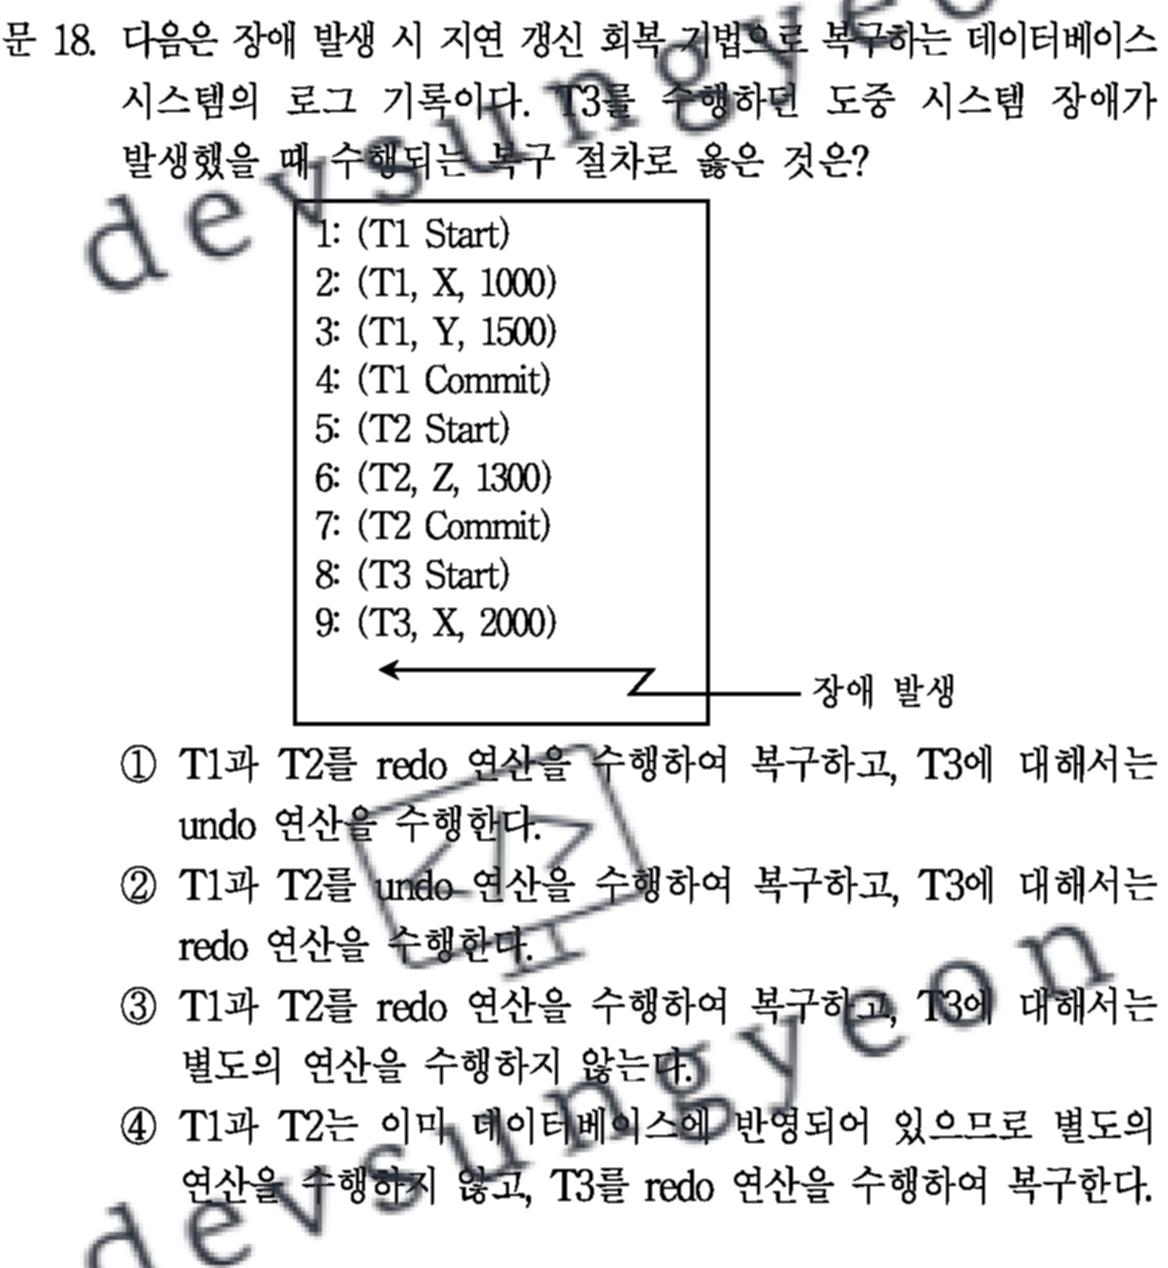 문 18. 다음은 장애 발생 시 지연 갱신 회복 기법으로 복구하는 데이터베이스
시스템의 로그 기록이다. T3를 수행하던 도중 시스템 장애가
발생했을 때 수행되는 복구 절차로 옳은 것은?
1: (T1 Start)
2: (T1, X, 1000)
3: (T1, Y, 1500)
4: (T1 Commit)
5: (T2 Start)
6: (T2, Z, 1300)
7: (T2 Commit)
8: (T3 Start)
9: (T3, X, 2000)
장애 발생
① T1과 T2를 redo 연산을 수행하여 복구하고, T3에 대해서는
undo 연산을 수행한다.
② T1과 T2를 undo 연산을 수행하여 복구하고, T3에 대해서는
redo 연산을 수행한다.
③ T1과 T2를 redo 연산을 수행하여 복구하고, T3에 대해서는
별도의 연산을 수행하지 않는다.
④ T1과 T2는 이미 데이터베이스에 반영되어 있으므로 별도의
연산을 수행하지 않고, T3를 redo 연산을 수행하여 복구한다.
devsungyeo
</>
devsungyeon